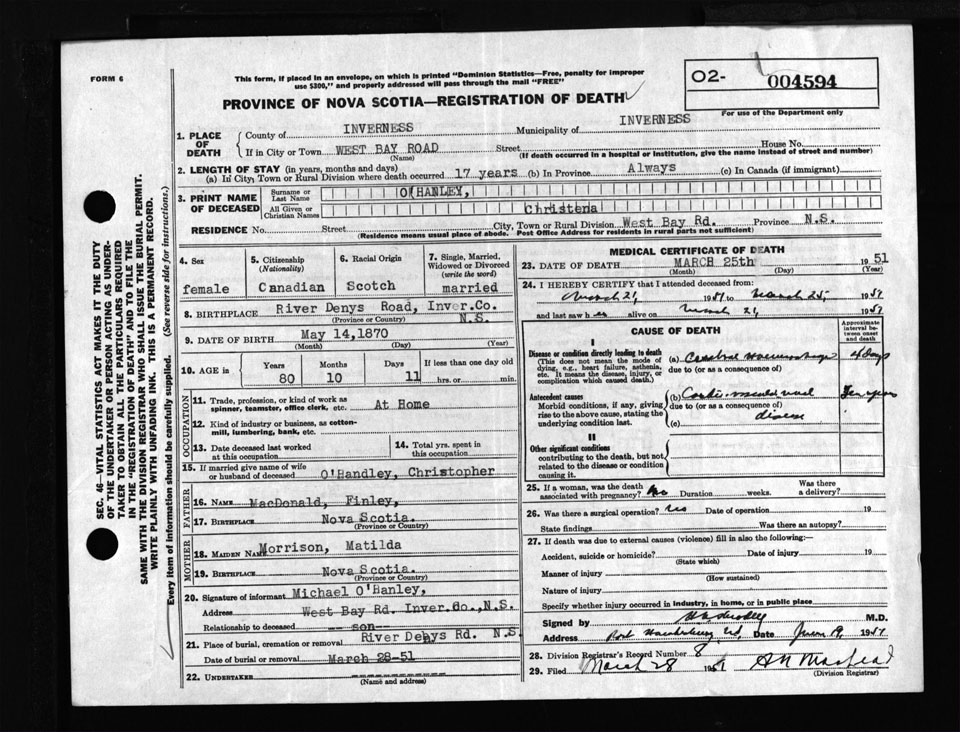 FORM 6
This form, if placed in an envelope, on which is printed "Dominion Statistics—Free, penalty for improper
use $300," and properly addressed will pass through the mail "FREE"
O2- 004594
For use of the Department only
PROVINCE OF NOVA SCOTIA—REGISTRATION OF DEATH
1. PLACE OF DEATH
County of INVERNESS Municipality of INVERNESS
If in City or Town WEST BAY ROAD Street House No.
(Name) (If death occurred in a hospital or institution, give the name instead of street and number)
2. LENGTH OF STAY (in years, months and days)
(a) In City, Town or Rural Division where death occurred 17 years (b) In Province Always (c) In Canada (if immigrant)
3. PRINT NAME OF DECEASED
Surname or Last Name O'HANLEY,
All Given or Christian Names Christena
RESIDENCE No. Street City, Town or Rural Division West Bay Rd. Province N.S.
(Residence means usual place of abode. Post Office Address for residents in rural parts not sufficient)
4. Sex female
5. Citizenship (Nationality) Canadian
6. Racial Origin Scotch
7. Single, Married, Widowed or Divorced (write the word) married
8. BIRTHPLACE River Denys Road, Inver.Co. N.S.
(Province or Country)
9. DATE OF BIRTH May 14,1870
(Month) (Day) (Year)
10. AGE in Years 80 Months 10 Days 11 If less than one day old hrs. or min.
OCCUPATION
11. Trade, profession, or kind of work as spinner, teamster, office clerk, etc. At Home
12. Kind of industry or business, as cotton-mill, lumbering, bank, etc.
13. Date deceased last worked at this occupation
14. Total yrs. spent in this occupation
15. If married give name of wife or husband of deceased O'Handley, Christopher
FATHER
16. NAME MacDonald, Finley,
17. BIRTHPLACE Nova Scotia.
(Province or Country)
MOTHER
18. MAIDEN NAME Morrison, Matilda
19. BIRTHPLACE Nova Scotia.
(Province or Country)
20. Signature of informant Michael O'Hanley,
Address West Bay Rd. Inver.Co.,N.S.
Relationship to deceased -- son --
21. Place of burial, cremation or removal River Denys Rd. N.S.
Date of burial or removal March 28-51
22. UNDERTAKER
(Name and address)
MEDICAL CERTIFICATE OF DEATH
23. DATE OF DEATH MARCH 25th 1951
(Month) (Day) (Year)
24. I HEREBY CERTIFY that I attended deceased from:
March 21, 1951 to March 25, 1951
and last saw her alive on March 21, 1951
CAUSE OF DEATH
Approximate interval between onset and death
I
Disease or condition directly leading to death
(This does not mean the mode of dying, e.g., heart failure, asthenia, etc. It means the disease, injury, or complication which caused death.)
(a) Cerebral Haemorrhage 4 days
due to (or as a consequence of)
Antecedent causes
Morbid conditions, if any, giving rise to the above cause, stating the underlying condition last.
(b) years
due to (or as a consequence of)
(c) disease
II
Other significant conditions
contributing to the death, but not related to the disease or condition causing it.
25. If a woman, was the death associated with pregnancy? No Duration weeks. Was there a delivery?
26. Was there a surgical operation? No Date of operation 19
State findings Was there an autopsy?
27. If death was due to external causes (violence) fill in also the following:
Accident, suicide or homicide? Date of injury 19
(State which)
Manner of injury
(How sustained)
Nature of injury
Specify whether injury occurred in industry, in home, or in public place
Signed by M.D.
Address Port Hawkesbury Date 1951
28. Division Registrar's Record Number 8
29. Filed March 28 1951
(Division Registrar)
SEC. 46—VITAL STATISTICS ACT MAKES IT THE DUTY
OF THE UNDERTAKER OR PERSON ACTING AS UNDER-
TAKER TO OBTAIN ALL THE PARTICULARS REQUIRED
IN THE "REGISTRATION OF DEATH" AND TO FILE THE
SAME WITH THE DIVISION REGISTRAR WHO SHALL ISSUE THE BURIAL PERMIT.
WRITE PLAINLY WITH UNFADING INK. THIS IS A PERMANENT RECORD.
Every item of information should be carefully supplied. (See reverse side for instructions.)